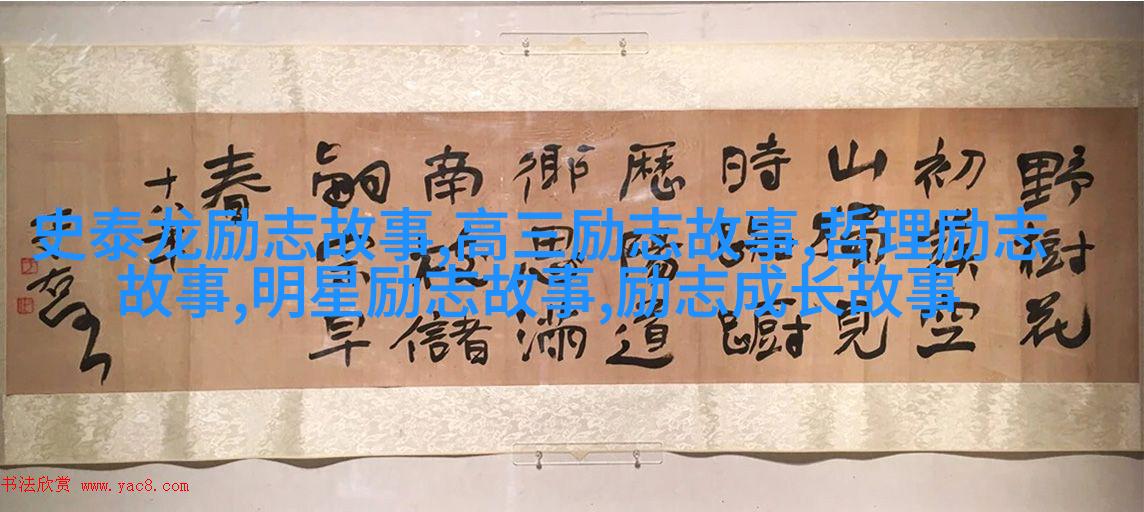 野樹花
初發空
山獨見
時踟躕
歷陽道
鄉思滿
南枝儲
嗣宗早
春
史泰龙励志故事,高三励志故事,哲理励志
故事,明星励志故事,励志成长故事
书法欣赏 www.yac8.com